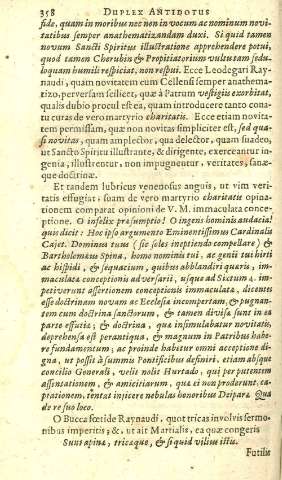 358 DUPLEX ANTIDOTUS
fidæ, quam in moribus nec non in vocum ac nominum novi-
tatibus semper anathematizandam duxi. Si quid tamen
novum Sancti Spiritus illustratione apprehendere potui,
quod tamen Cherubis & Propitiatorium vultusam sedu-
loquam humili respiciat, non respui. Ecce Leodegari Ray-
naudi, quam novitatem cum Cellensi semper anathema-
tizo, perversam scilicet, quæ à Patrum vestigiis exorbitat,
qualis dubio procul est ea, quam introducere tanto cona-
tu curas de vero martyrio charitatis. Ecce etiam novita-
tem permissam, quæ non novitas simpliciter est, sed qua-
si novitas, quam amplector, qua delector, quam suadeo,
ut Sancto Spiritu illustrante, & dirigente, exerceantur in-
genia, illustrentur, non impugnentur, veritates, sanæ-
que doctrinæ.
Et tandem lubricus venenosus anguis, ut vim veri-
tatis effugiat, suam de vero martyrio charitatis opina-
tionem comparat opinioni de V. M. immaculata conce-
ptione. O infelix præsumptio! O ingens hominis audacia!
quis dicit: Hoc ipso argumento Eminentissimus Cardinalis
Cajet. Dominus tuus (sic soles ineptiendo compellare) &
Bartholomæus Spina, homo nominis tui, ac genii tui hirti
ac hispidi, & sequacium, quibus abblandiri quæris, im-
maculatæ conceptionis adversarii, usque ad Sixtum
impetiverunt assertionem conceptionis immaculatæ, dicentes
esse doctrinam novam ac Ecclesia incompertam, & pugnan-
tem cum doctrina sanctorum, & tamen divisa sunt in ea
parte effutia; & doctrina, qua insimulabatur novitatis,
deprehensa est perantiqua, & magnum in Patribus habe-
re fundamentum; ac proinde habetur omni acceptione di-
gna, ut possit à summis Pontificibus definiri, etiam absque
concilio Generali, velis nolis Hurtado, qui per putentem
assentationem, & amicitiarum, quæ ei non proderunt, ca-
ptationem, tentat injicere nebulas honoribus Deiparæ Qua
de re suo loco.
O Bucca fœtide Raynaudi, quot tricas involvis sermo-
nibus imperitis; &, ut ait Martialis, ea quæ congeris
Sunt apinæ, tricæque, & si quid vilius istis.
Futilis